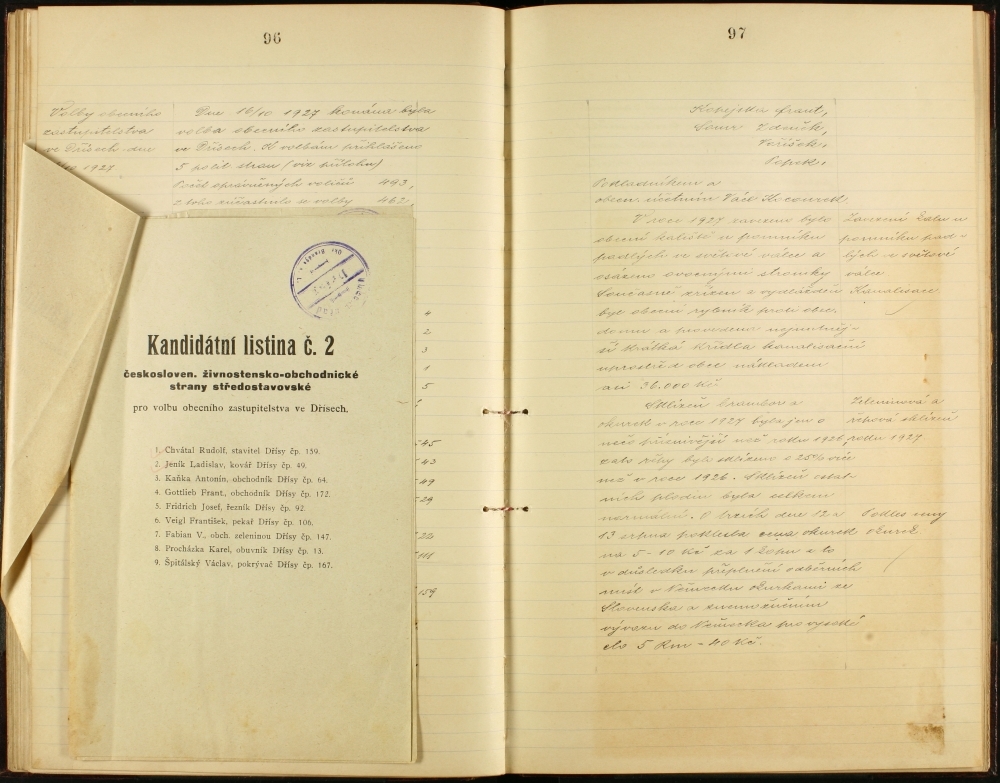 96
Volby obecního
zastupitelstva
ve Dřísech dne
1927
Dne 16/10 1927 konána byla
volba obecního zastupitelstva
ve Dřísech. K volbám přihlášeno
5 polit. stran (viz přílohu)
Počet oprávněných voličů 493,
z toho zúčastnilo se volby 462,
Kandidátní listina č. 2
českosloven. živnostensko-obchodnické
strany středostavovské
pro volbu obecního zastupitelstva ve Dřísech.
1. Chvátal Rudolf, stavitel Dřísy čp. 159.
2. Jeník Ladislav, kovář Dřísy čp. 49.
3. Kaňka Antonín, obchodník Dřísy čp. 64.
4. Gottlieb Frant., obchodník Dřísy čp. 172.
5. Fridrich Josef, řezník Dřísy čp. 92.
6. Veigl František, pekař Dřísy čp. 106.
7. Fabian V., obch. zeleninou Dřísy čp. 147.
8. Procházka Karel, obuvník Dřísy čp. 13.
9. Špitálský Václav, pokrývač Dřísy čp. 167.
4
2
3
1
5
45
43
49
29
22
111
159
97
frant,
Zdeněk,
Poříšek,
Popek,
Pokladníkem a
obecn. účetním Václ.
V roce 1927 zavezeno bylo
obecní kaliště u pomníku
padlých ve světové válce a
osázeno ovocnými stromky
Současně zřízen a vydlážděn
byl obecní rybník proti obec.
domu a provedena nejnutněj-
ší krátká křídla kanalisační
uprostřed obce nákladem
asi 36.000 Kč.
Zavezení kalu u
pomníku pad-
lých ve světové
válce
Kanalisace
Sklizeň brambor a
okurek v roce 1927 byla jen o
něco příznivější než roku 1926,
zato řepy bylo sklizeno o 25% více
než v roce 1926. Sklizeň ostat-
ních plodin byla celkem
normální. O trzích dne 12 a
13 srpna poklesla cena okurek
na 5-10 Kč za 1 kopu a to
v důsledku přeplnění odběrních
míst v Německu okurkami ze
Slovenska a
vývozu do Německa pro vysoké
clo 5 Rm - 40 Kč.
Zeleninová a
řepová sklizeň
roku 1927
Pokles ceny
okurek